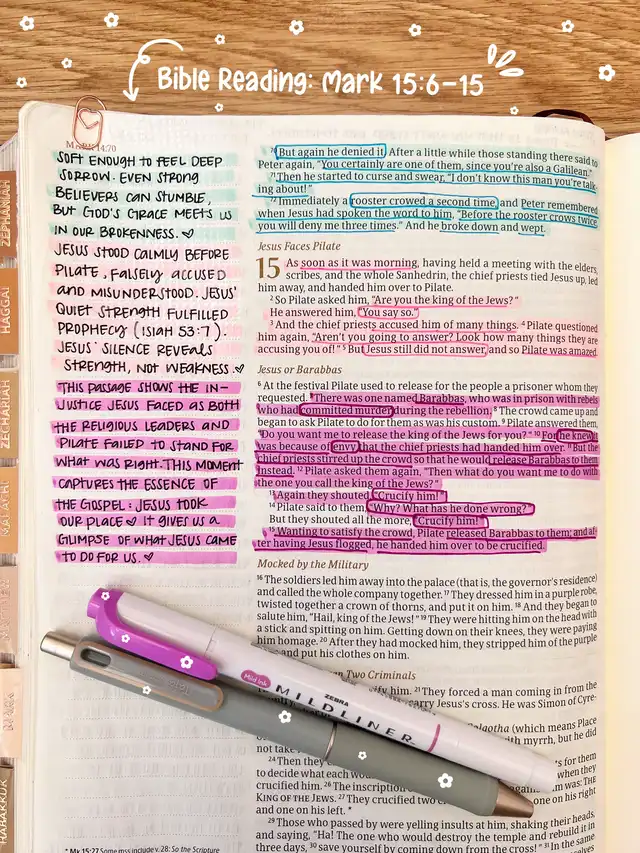 Bible Reading: Mark 15:6-15
MARK 14:70
SOFT ENOUGH TO FEEL DEEP
SORROW. EVEN STRONG
BELIEVERS CAN STUMBLE,
BUT GOD'S GRACE MEETS US
IN OUR BROKENNESS.
JESUS STOOD CALMLY BEFORE
PILATE, FALSELY ACCUSED
AND MISUNDERSTOOD. JESUS'
QUIET STRENGTH FULFILLED
PROPHECY (ISIAH 53:7).
JESUS' SILENCE REVEALS
STRENGTH, NOT WEAKNESS.
THIS PASSAGE SHOWS THE IN-
JUSTICE JESUS FACED AS BOTH
THE RELIGIOUS LEADERS AND
PILATE FAILED TO STAND FOR
WHAT WAS RIGHT. THIS MOMENT
CAPTURES THE ESSENCE OF
THE GOSPEL: JESUS TOOK
OUR PLACE IT GIVES US A
GLIMPSE OF WHAT JESUS CAME
TO DO FOR US.
70 But again he denied it. After a little while those standing there said to
Peter again, "You certainly are one of them, since you're also a Galilean."
71 Then he started to curse and swear, "I don't know this man you're talk-
ing about!"
72 Immediately a rooster crowed a second time, and Peter remembered
when Jesus had spoken the word to him, "Before the rooster crows twice
you will deny me three times." And he broke down and wept.
Jesus Faces Pilate
15 As soon as it was morning, having held a meeting with the elders,
scribes, and the whole Sanhedrin, the chief priests tied Jesus up, led
him away, and handed him over to Pilate.
2 So Pilate asked him, "Are you the king of the Jews?"
He answered him, "You say so."
3 And the chief priests accused him of many things. 4 Pilate questioned
him again, "Aren't you going to answer? Look how many things they are
accusing you of!" 5 But Jesus still did not answer, and so Pilate was amazed
Jesus or Barabbas
6 At the festival Pilate used to release for the people a prisoner whom they
requested. 7 There was one named Barabbas, who was in prison with rebels
who had committed murder during the rebellion. 8 The crowd came up and
began to ask Pilate to do for them as was his custom. 9 Pilate answered them,
"Do you want me to release the king of the Jews for you?" 10 For he knew
it was because of envy that the chief priests had handed him over. 11 But the
chief priests stirred up the crowd so that he would release Barabbas to them
instead. 12 Pilate asked them again, "Then what do you want me to do with
the one you call the king of the Jews?"
13 Again they shouted, "Crucify him!"
14 Pilate said to them, "Why? What has he done wrong?"
But they shouted all the more, "Crucify him!"
15 Wanting to satisfy the crowd, Pilate released Barabbas to them; and af-
ter having Jesus flogged, he handed him over to be crucified.
Mocked by the Military
16 The soldiers led him away into the palace (that is, the governor's residence)
and called the whole company together. 17 They dressed him in a purple robe,
twisted together a crown of thorns, and put it on him. 18 And they began to
salute him, "Hail, king of the Jews!" 19 They were hitting him on the head with
a stick and spitting on him. Getting down on their knees, they were paying
him homage. 20 After they had mocked him, they stripped him of the purple
and put his clothes on him.
Two Criminals
him. 21 They forced a man coming in from the
carry Jesus's cross. He was Simon of Cyre-
Golgotha (which means Place
with myrrh, but he did
not take
24 Then they
for them
to decide what each
when they
crucified him. 26 The inscription
was: THE
KING OF THE JEWS. 27 They crucified two
one on his right
and one on his left.
29 Those who passed by were yelling insults at him, shaking their heads,
and saying, "Ha! The one who would destroy the temple and rebuild it in
three days, 30 save yourself by coming down from the cross!" 31 In the same
* Mk 15:27 Some mss include v. 28: So the Scripture
ZEPHANIAH
HAGGAI
ZECHARIAH
MALACHI
MARK
HABAKKUK
Mild Ink
ZEBRA
MILDLINER